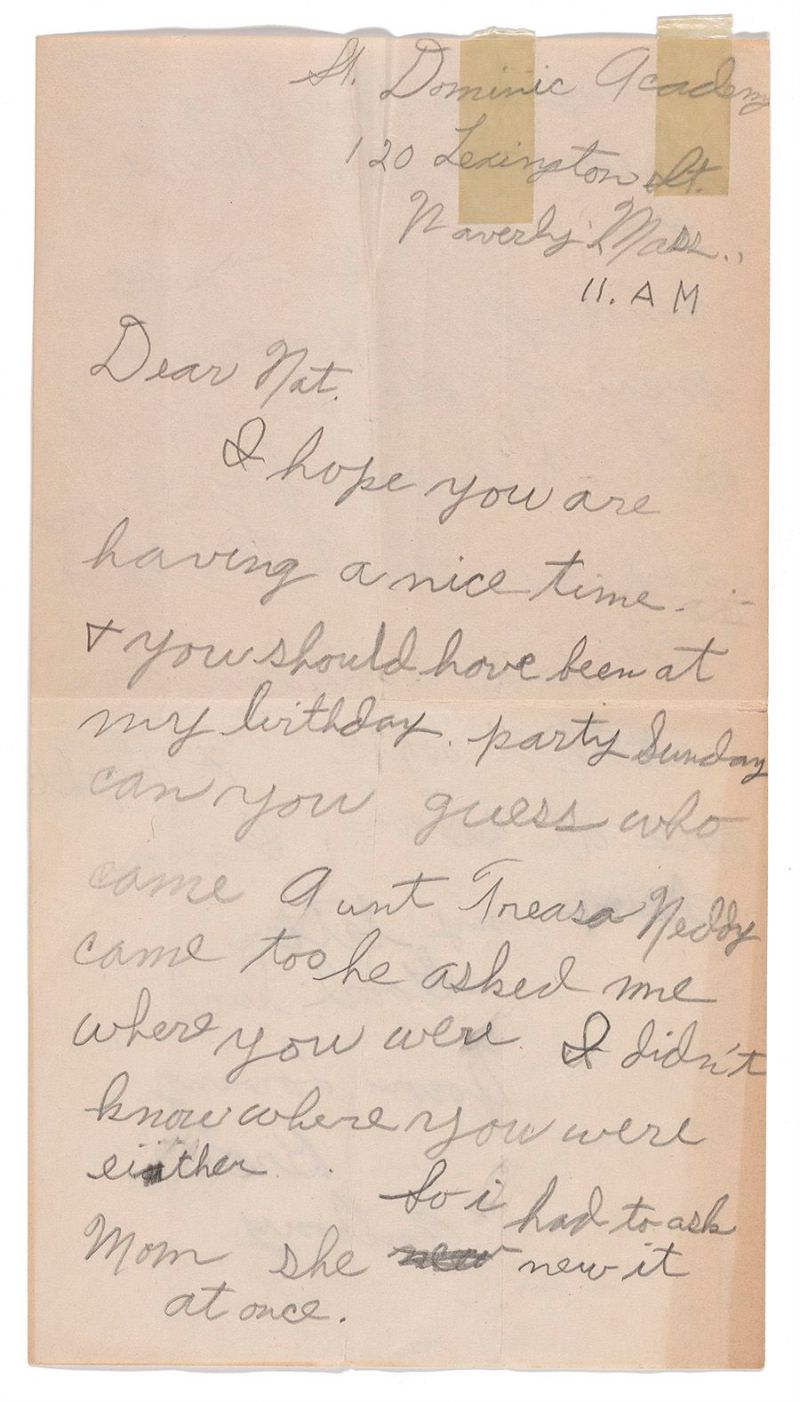 St. Dominic Academy
120 Lexington St.
Waverly Mass..
11. A M
Dear Nat.
I hope you are
having a nice time.
+ you should have been at
my birthday. party Sunday
can you guess who
came Aunt Treasa Neddy
came too he asked me
where you were. I didn't
know where you were
either. So i had to ask
Mom she new it
at once.